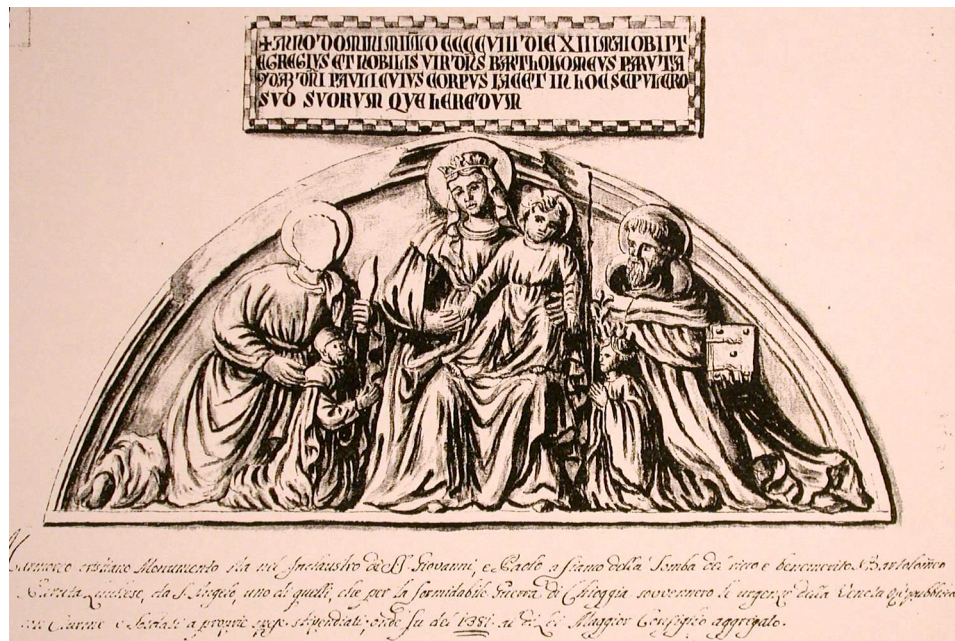 +ANNO DOMINI MILLO CCCCVIII DIE XIII MAI OBIIT
EGREGIVS ET NOBILIS VIR DNS BARTHOLOMEVS PARVTA
DNI PAVLI CVIVS CORPVS IACET IN HOC SEPVLCRO
SVO SVORVM QVE HEREDVM
Marmoreo Monumento sta nel Inclaustro di SS Giovanni, e Paolo a fianco della Tomba del ricco e benemerito Bartolomeo
Paruta da S. Angelo, uno di quelli, che per la formidabile Guerra di Chioggia sovvennero le urgenze della Veneta Repubblica
con e a proprie spese stipendiati, onde fu del 1381 al di Lei Maggior Consiglio aggregato.